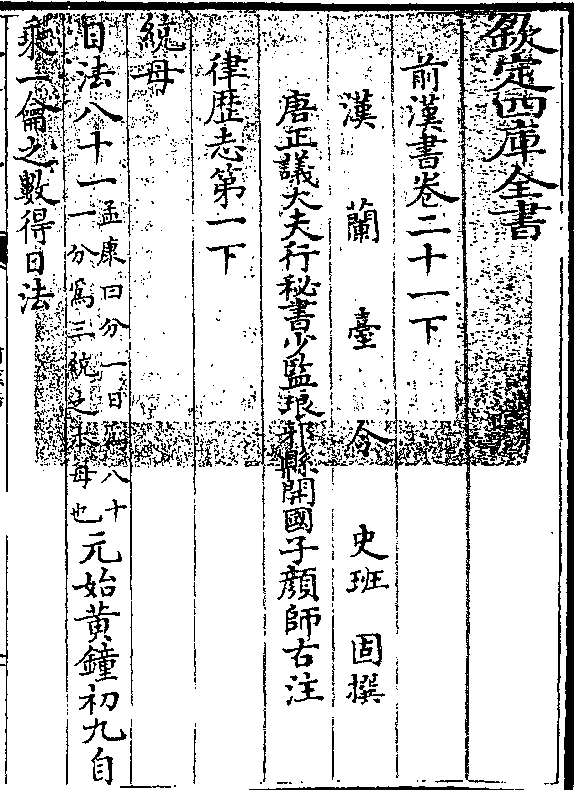 欽定四庫全書
前漢書卷二十一下
漢蘭臺令史班固撰
唐正議大夫行秘書少監琅邪縣開國子顔師古注
律歷志第一下
統母
日法八十一孟康曰分一日為八十一分為三統之本母也元始黄鐘初九自
乘一龠之數得日法